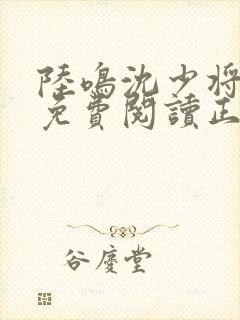 陸鳴沈少將
免費閱讀正
谷慶堂